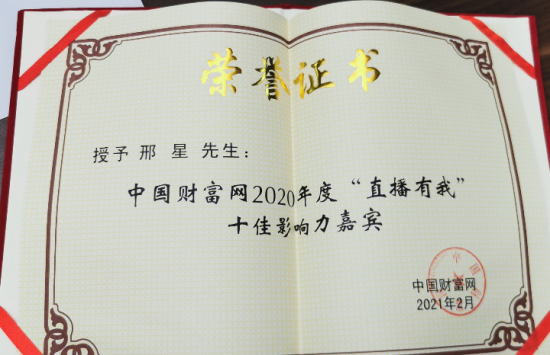 荣誉证书
授予 邢 星 先生：
中国财富网2020年度“直播有我”
十佳影响力嘉宾
中国财富网
2021年2月